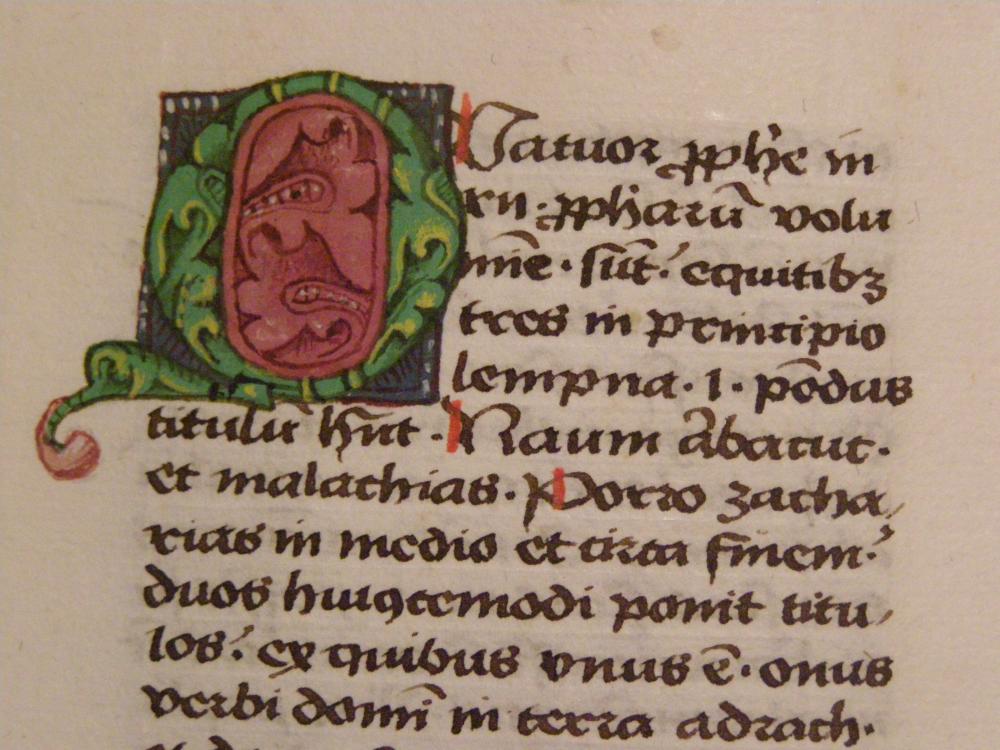 Quatuor ꝓph̄e in
xii. ꝓph̄arū volu
mīe. sūt. equitibꝫ
tres in principio
lempna. i. pōdus
titulū hn̄t. Naum Abacuc.
et malachias. Porro zacha
rias in medio et circa finem.
duos huiꝰcemodi ponit titu
los. ex quibus vnus ē. onus
verbi domī in terra adrach.